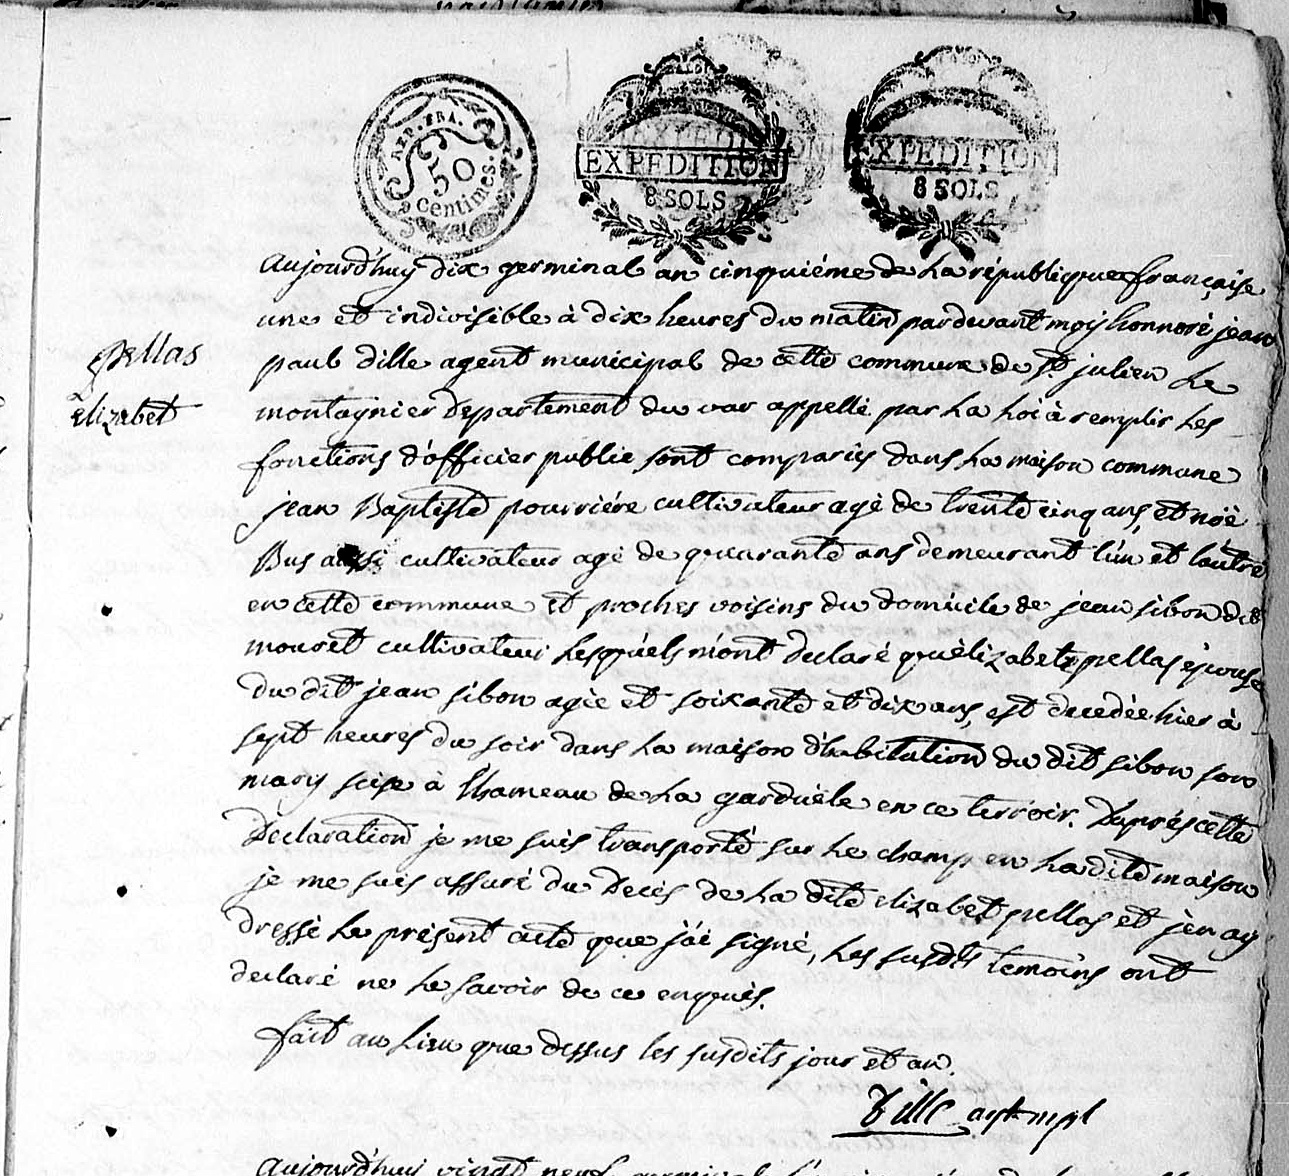 REP. FRA.
50
centimes.
EXPEDITION
8 SOLS
EXPEDITION
8 SOLS
Pellas
Elizabet
aujourd'huy dix germinal an cinquiéme de la république française
une et indivisible à dix heures du matin pardevant moy honnoré jean
paul dille agent municipal de cette commune de st julien le
montagnier departement du var appellé par la loi à remplir les
fonctions d'officier public sont comparus dans la maison commune
jean Baptiste pourriére cultivateur agé de trente cinq ans, et noé
Bus aussi cultivateur agé de quarante ans demeurant l'un et l'autre
en cette commune et proches voisins du domicile de jean sibon dit
mouret cultivateur lesquels m'ont declaré qu'elizabet pellas épouse
du dit jean sibon agée et soixante et dix ans, est decedée hier à
sept heures du soir dans la maison d'habitation du dit sibon son
mary scise à l'hameau de la garduèle en ce terroir. D'aprés cette
Declaration je me suis transporté sur le champ en la dite maison
je me suis assuré du Decés de la dite elizabet pellas et j'en ay
dressé le présent acte que j'ai signé, les susdits temoins ont
declaré ne le savoir de ce enquis.
fait au lieu que dessus les susdits jour et an.
Dille agt mpl
aujourd'huy vingt neuf germinal